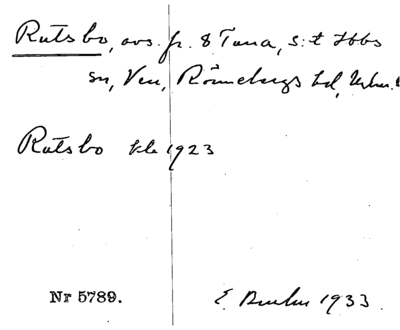 Rutsbo, avs. fr. 8 Tuna, S:t Ibbs
sn, Ven, Rönnebergs hd,
Rutsbo kle 1923
Nr 5789.
E 1933.